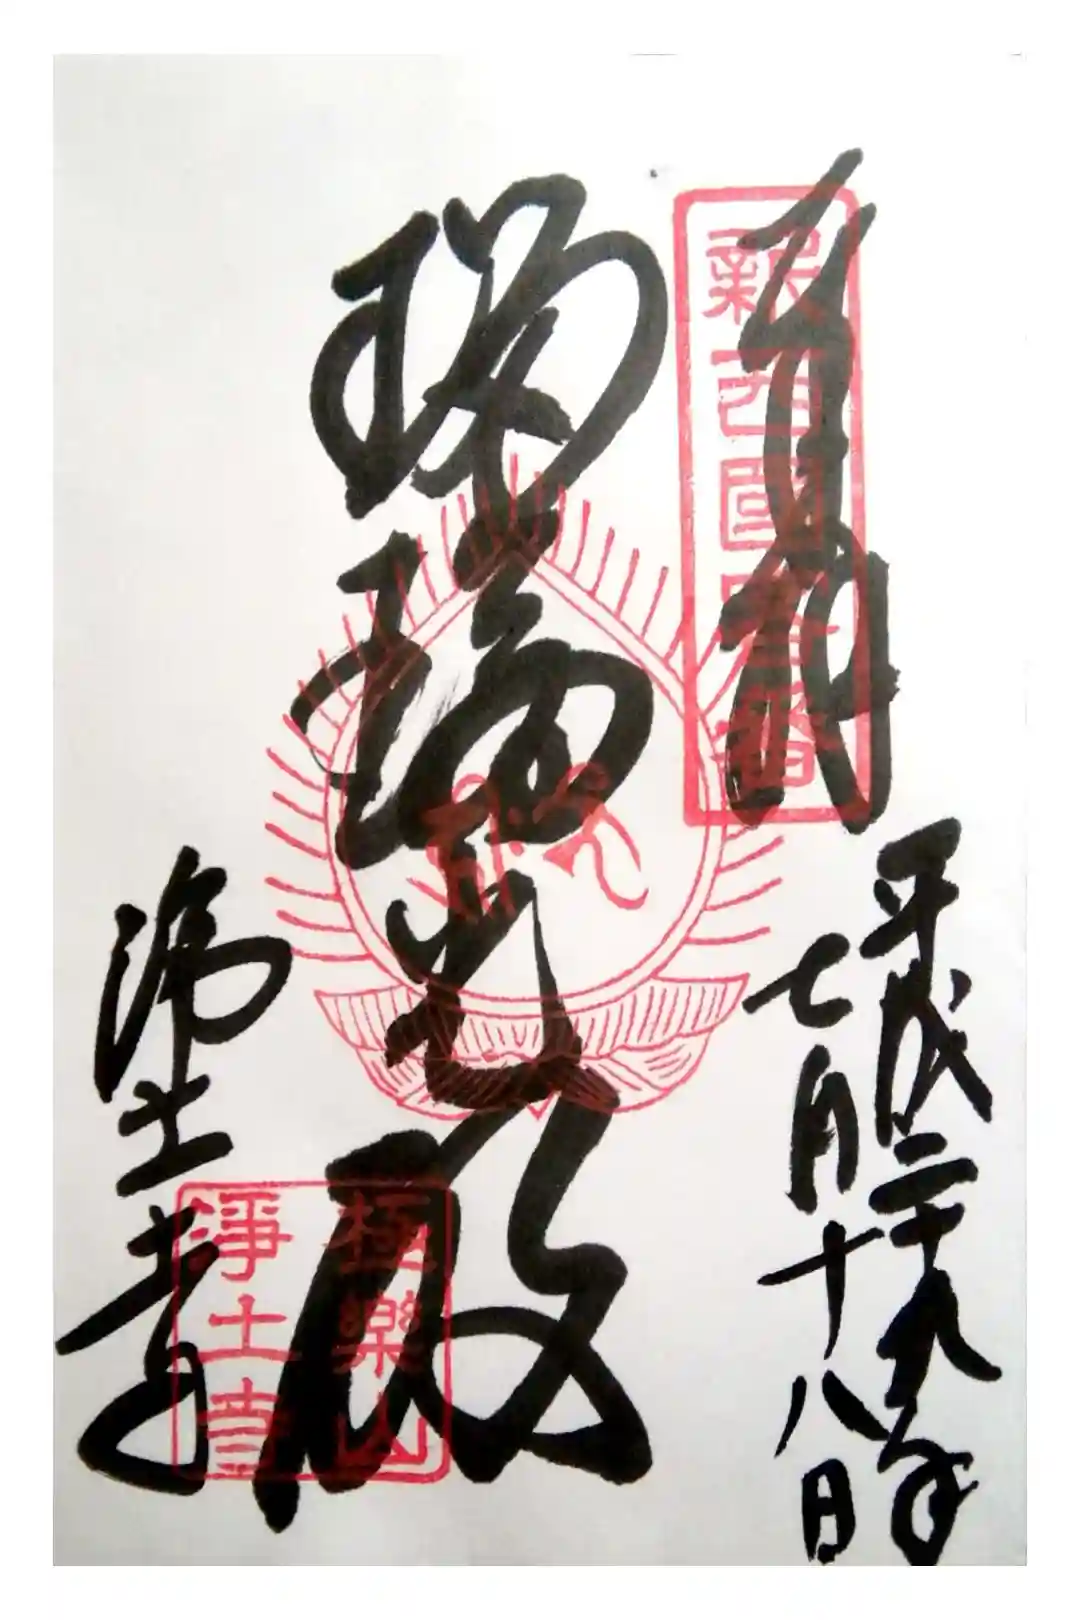 奉拝
新西國客番
平成二十九年
七月十八日
瑠璃光殿
浄土寺
極樂山
淨土寺